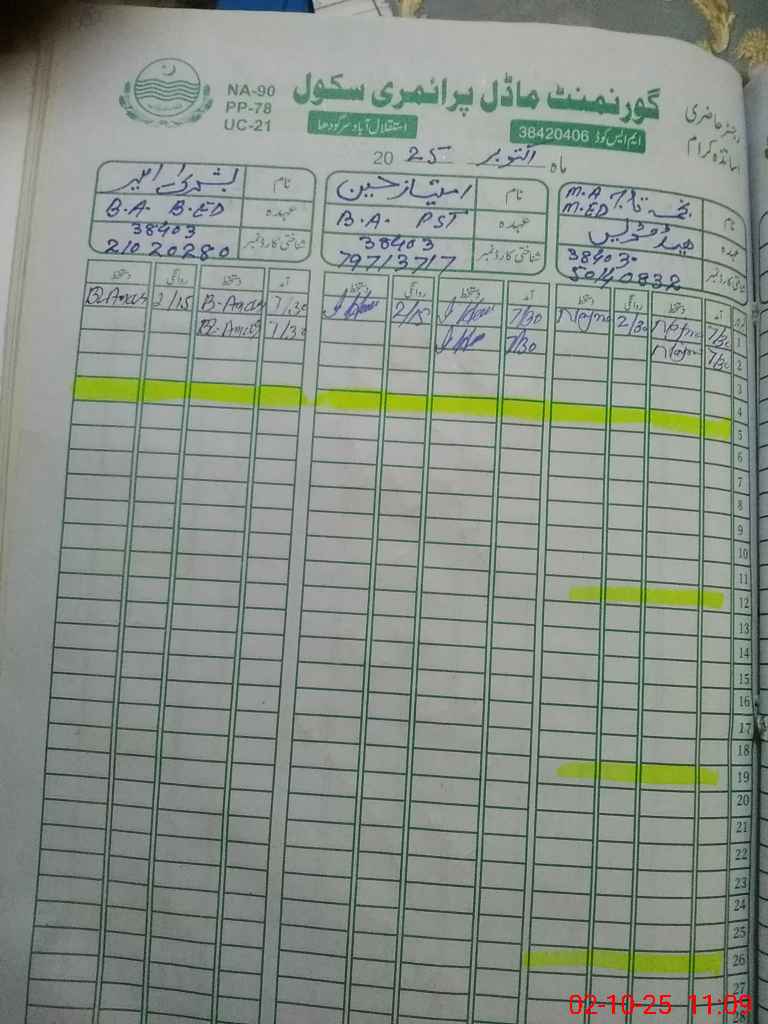 NA-90
PP-78
UC-21
گورنمنٹ ماڈل پرائمری سکول
استقلال آباد سرگودھا
ایم ایس کوڈ 38420406
رجسٹر حاضری
اساتذہ کرام
ماہ اکتوبر 2025
نام
M.A
M.ED
عہدہ
شناختی کارڈ نمبر
38403
50140832
نام امتیاز حسین
عہدہ B.A. PST
شناختی کارڈ نمبر 38403
79713717
نام بشریٰ امیر
عہدہ B.A. B.ED
شناختی کارڈ نمبر 38403
21020280
آمد دستخط روانگی دستخط آمد دستخط روانگی دستخط آمد دستخط روانگی دستخط
1 7/30 2/30 7/30 2/15 7/30 2/15
2 7/30 7/30 7/30
3
4
5
6
7
8
9
10
11
12
13
14
15
16
17
18
19
20
21
22
23
24
25
26
27
28
02-10-25 11:09